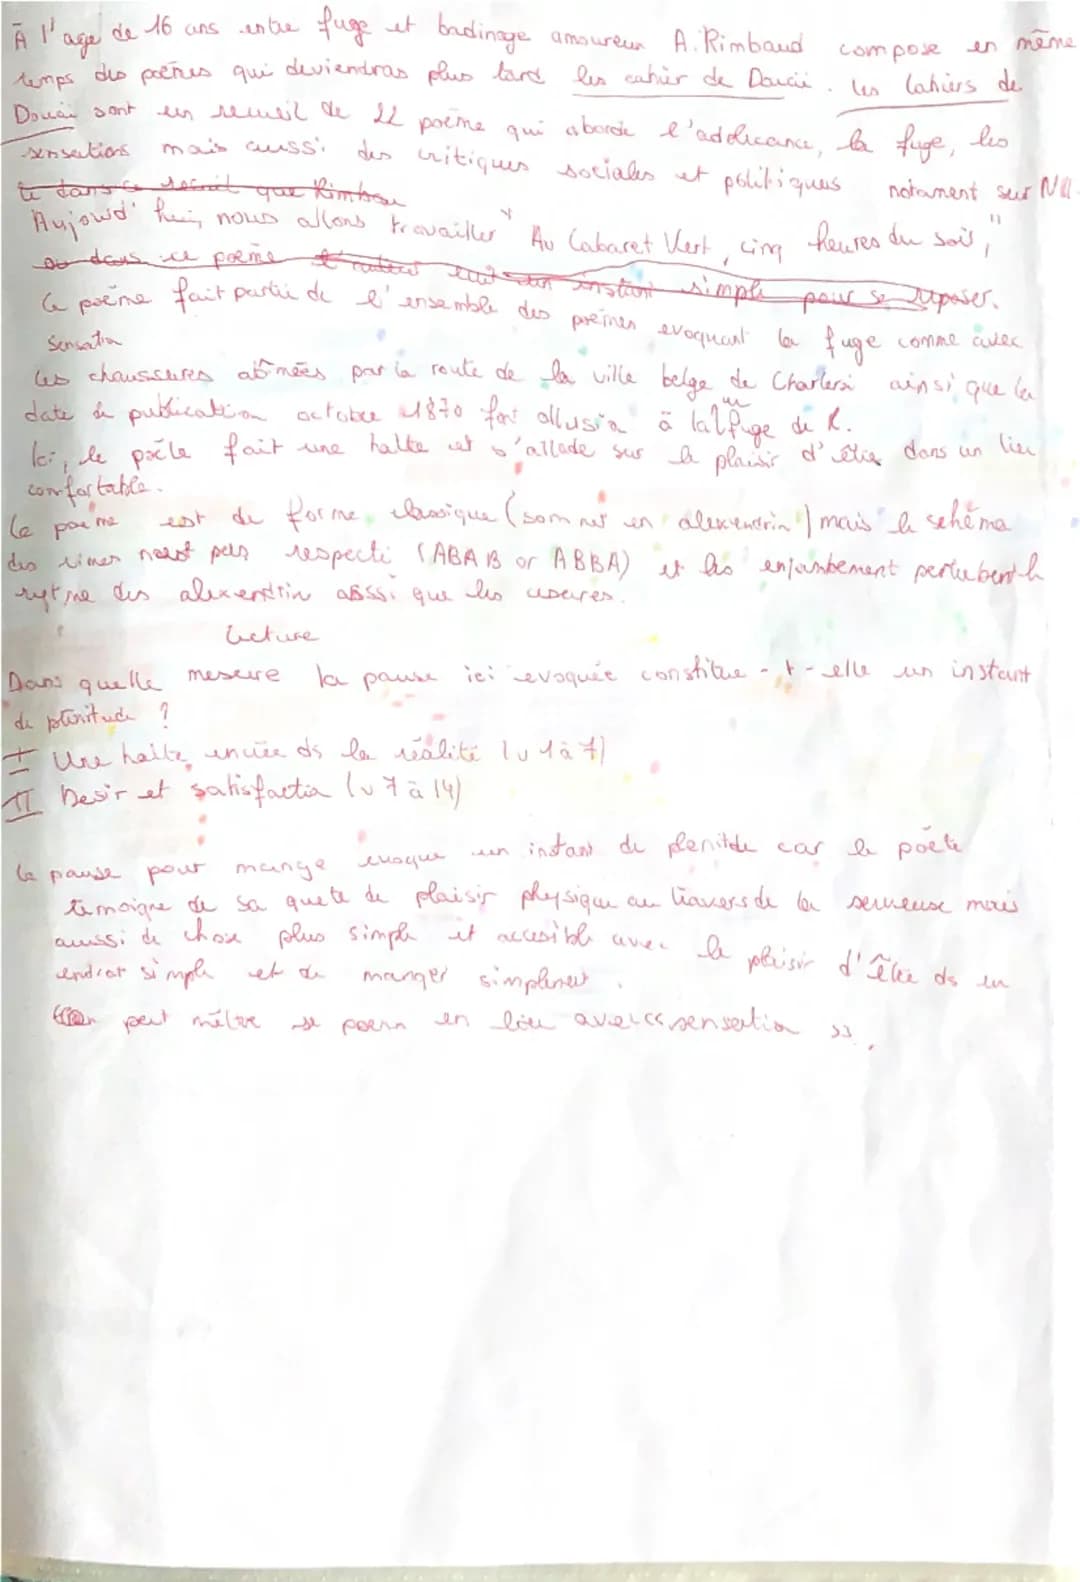 À l'age de 16 ans entre fuge et badinage amoureux A. Rimbaud compose en même
temps des poèmes qui deviendras plus tard les cahier de Douai. Les Cahiers de
Douai sont un recueil de 22 poème qui aborde l'adolescance, la fuge, les
sensations mais aussi des critiques sociales et politiques notament sur
que Rimbau
Aujourd'hui, nous allons travailler "Au Cabaret Vert, cinq heures du soir,"
ou dans ce poème l'auteur un instant simple pour se reposer.
Ce poème fait partie de l'ensemble des poèmes evoquant la fuge comme avec
Sensation
Les chaussures abîmées par la route de la ville belge de Charleroi ainsi que la
date de publication octobre 1870 font allusion à la fuge de R.
Ici, le poète fait une halte et s' sur le plaisir d'être dans un lieu
comfortable.
Le poème est de forme classique (sonnet en alexendrin) mais le schéma
des rimes n'est pas respecté (ABAB or ABBA) et les enjambement pertubent le
rytme des alexendrin aissi que les cesures.
Lecture
Dans quelle mesure la pause ici evoquée constitue-t-elle un instant
de plenitude ?
I Une halte, ancrée ds la réalité (v 1 à 7)
II Desir et satisfaction (v 7 à 14)
La pause pour mange evoque un instant de plenitde car le poète
témoigne de sa quete de plaisir physique au travers de la serveuse mais
aussi de chose plus simple et accesible avec le plaisir d'être ds un
endroit simple et de manger simplement.
peut mettre se poem en lien avec «sensation».